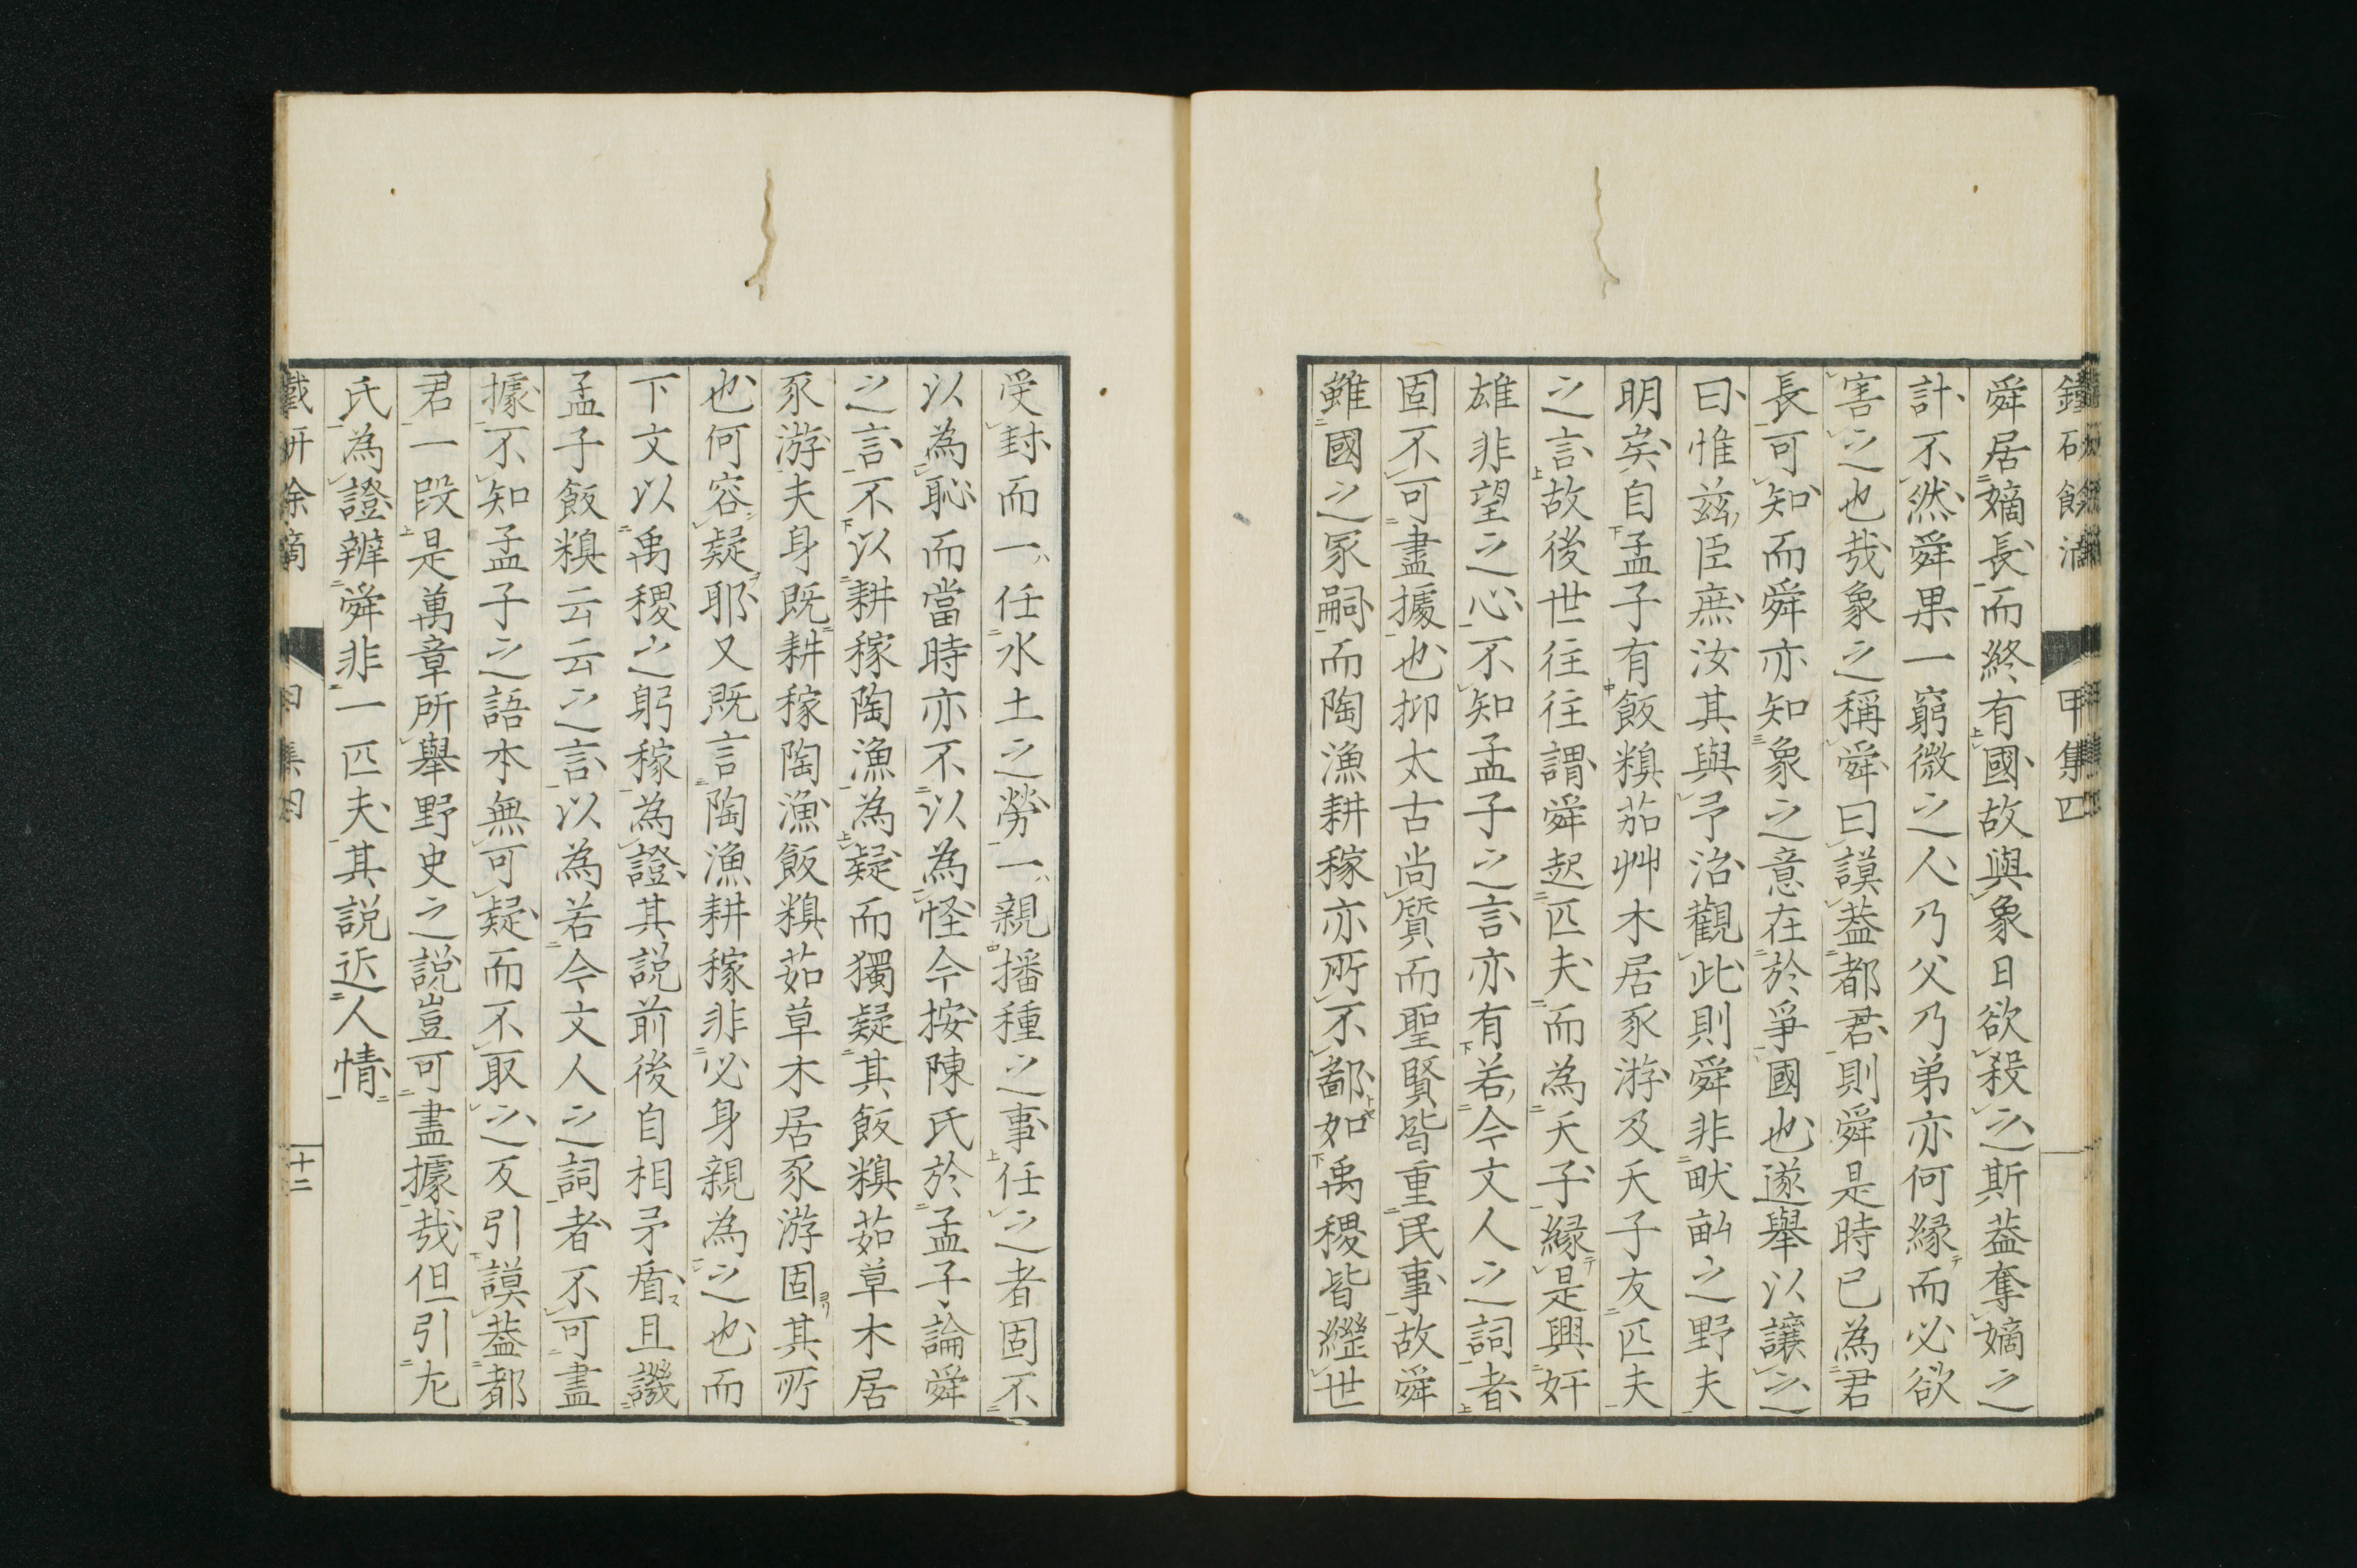 甲集四
舜居嫡長而終有國故與象日欲殺之斯葢奪嫡之
計不然舜果一窮微之人乃父乃弟亦何緣而必欲
害之也哉象之稱舜曰謨葢都君則舜是時已為君
長可知而舜亦知象之意在於爭國也遂舉以讓之
曰惟茲臣庶汝其與予治觀此則舜非畎畝之野夫
明矣自孟子有飯糗茹艸木居豕游及天子友匹夫
之言故後世往往謂舜起匹夫而為天子緣是興奸
雄非望之心不知孟子之言亦有若今文人之詞者
固不可盡據也抑太古尚質而聖賢皆重民事故舜
雖國之冢嗣而陶漁耕稼亦所不鄙如禹稷皆繼世
受封而一任水土之勞一親播種之事任之者固不
以為恥而當時亦不以為怪今按陳氏於孟子論舜
之言不以耕稼陶漁為疑而獨疑其飯糗茹草木居
豕游夫身既耕稼陶漁飯糗茹草木居豕游固其所
也何容疑耶又既言陶漁耕稼非必身親為之也而
下文以禹稷之躬稼為證其說前後自相矛盾且譏
孟子飯糗云云之言以為若今文人之詞者不可盡
據不知孟子之語本無可疑而不取之反引謨葢都
君一段是萬章所舉野史之說豈可盡據哉但引左
氏為證辨舜非一匹夫其説近人情
十二